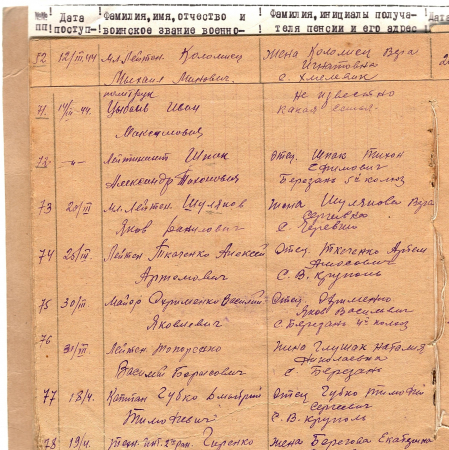 №№ Дата Фамилия, имя, отчество и Фамилия, инициалы получа- Дата
пп поступ- воинское звание военно- теля пенсии и его адрес
12/III.44 Мл. Лейтен. Коломиец Жена Коломиец Вера
Игнатовна
Михаил Минович с.
политрук Не известно
71. 14/III-44. Иван какая семья.
Максимович
72 -"- Лейтинант Шпак Отец. Шпак Тихон
Ефимович
Александр Тихонович Березань 5й колхоз
73 20/III Мл. Лейтен. Шуляков Жена Шулякова Вера
Сергеевна
Яков Данилович с.
74 25/III Лейтен Ткаченко Алексей Отец. Ткаченко Артем
Артемович С. В. Круполь
75 30/III Майор Охрименко Василий Отец. Охрименко
Яков Васильевич
Яковлевич С. Березань 4й колхоз
76
31/III Лейтен. Жена Глушак Наталия
Николаевна
Василий Борисович с. Березань
77 18/4. Капитан Губко Дмитрий Отец Губко Тимофей
Сергеевич
Тимофеевич С. В. Круполь
78 19/4. Гиренко Жена Берегова